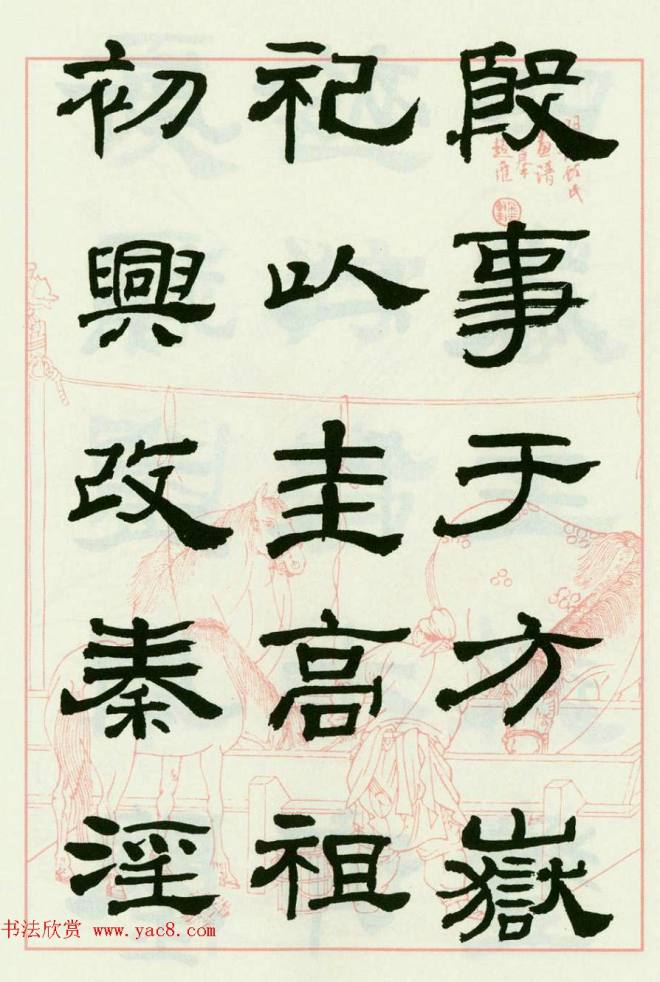 殷事于方嶽
祀以圭高祖
初興改秦淫
书法欣赏 www.yac8.com